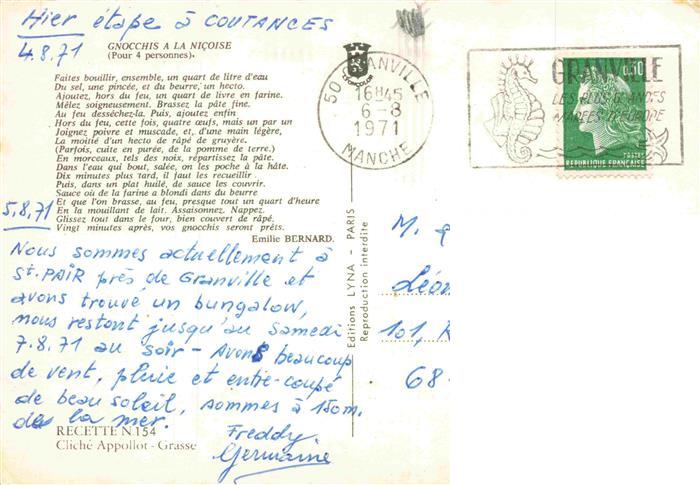 Hier étape à COUTANCES
4.8.71
GNOCCHIS A LA NIÇOISE
(Pour 4 personnes).
Faites bouillir, ensemble, un quart de litre d'eau
Du sel, une pincée, et du beurre, un hecto.
Ajoutez, hors du feu, un quart de livre en farine.
Mêlez soigneusement. Brassez la pâte fine.
Au feu desséchez-la. Puis, ajoutez enfin
Hors du feu, cette fois, quatre œufs, mais un par un
Joignez poivre et muscade, et, d'une main légère,
La moitié d'un hecto de râpé de gruyère.
(Parfois, cuite en purée, de la pomme de terre).
En morceaux, tels des noix, répartissez la pâte.
Dans l'eau qui bout, salée, on les poche à la hâte.
Dix minutes plus tard, il faut les recueillir.
Puis, dans un plat huilé, de sauce les couvrir.
Sauce où de la farine a blondi dans du beurre
Et que l'on brasse, au feu, presque tout un quart d'heure
En la mouillant de lait. Assaisonnez. Nappez.
Glissez tout dans le four, bien couvert de râpé.
Vingt minutes après, vos gnocchis seront prêts.
Emilie BERNARD.
5.8.71
Nous sommes actuellement à
St. PAIR près de Granville et
avons trouvé un bungalow,
nous restont jusqu'au Samedi
7.8.71 au soir - Avons beaucoup
de vent, pluie et entre-coupé
de beau soleil, sommes à 150m.
de la mer.
Freddy
Germaine
RECETTE N 154
Cliché Appollot - Grasse
Editions LYNA - PARIS
Reproduction interdite
LYNACOLOR
50 GRANVILLE
16H45
6-8
1971
MANCHE
GRANVILLE
LES PLUS GRANDES
MAREES D'EUROPE
0,30
POSTES
REPUBLIQUE FRANÇAISE
M.
Léon
101,
68-